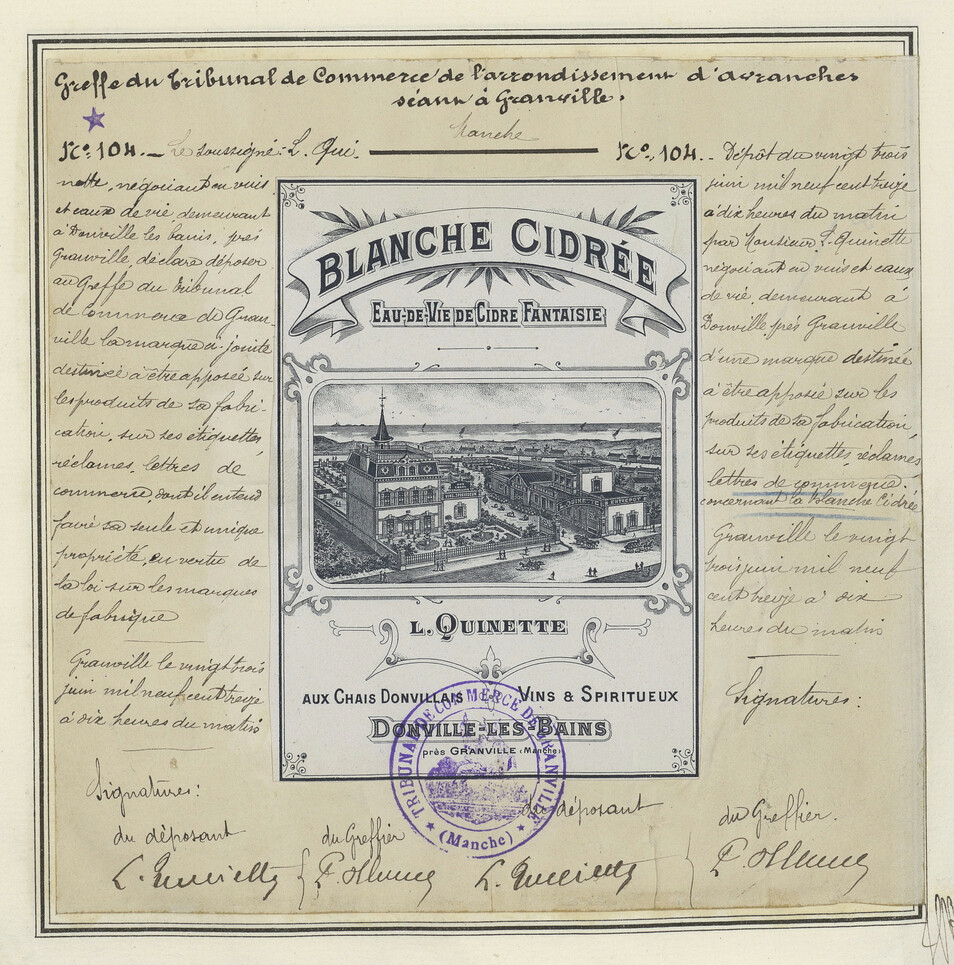 Greffe du Tribunal de Commerce de l'arrondissement d'avranches
séant à Granville.
Manche
Nº 104. _ Le soussigné L. Qui
nette, négociant en vins
et eaux de vie demeurant
à Donville les bains, près
Granville, déclare déposer
au Greffe du Tribunal
de Commerce de Gran-
ville la marque ci-jointe
destinée à être apposée sur
les produits de sa fabri-
cation, sur ses étiquettes,
réclames, lettres de
commerce, dont il entend
faire sa seule et unique
propriété, en vertu de
la loi sur les marques
de fabrique
Granville le vingt trois
juin mil neuf cent treize
à dix heures du matin
Signatures:
du déposant
du Greffier
L. Quinette
BLANCHE CIDRÉE
EAU-DE-VIE DE CIDRE FANTAISIE
L. QUINETTE
AUX CHAIS DONVILLAIS VINS & SPIRITUEUX
DONVILLE-LES-BAINS
près GRANVILLE (Manche)
TRIBUNAL DE COMMERCE DE GRANVILLE
(Manche)
Nº. 104. _ Dépôt du vingt trois
juin mil neuf cent treize
à dix heures du matin
par Monsieur L. Quinette
négociant en vins et eaux
de vie, demeurant à
Donville près Granville
d'une marque destinée
à être apposée sur les
produits de sa fabrication,
sur ses étiquettes, réclames
lettres de commerce.
concernant la Blanche Cidrée
Granville le vingt
trois juin mil neuf
cent treize à dix
heures du matin
Signatures:
du déposant
du Greffier.
L. Quinette